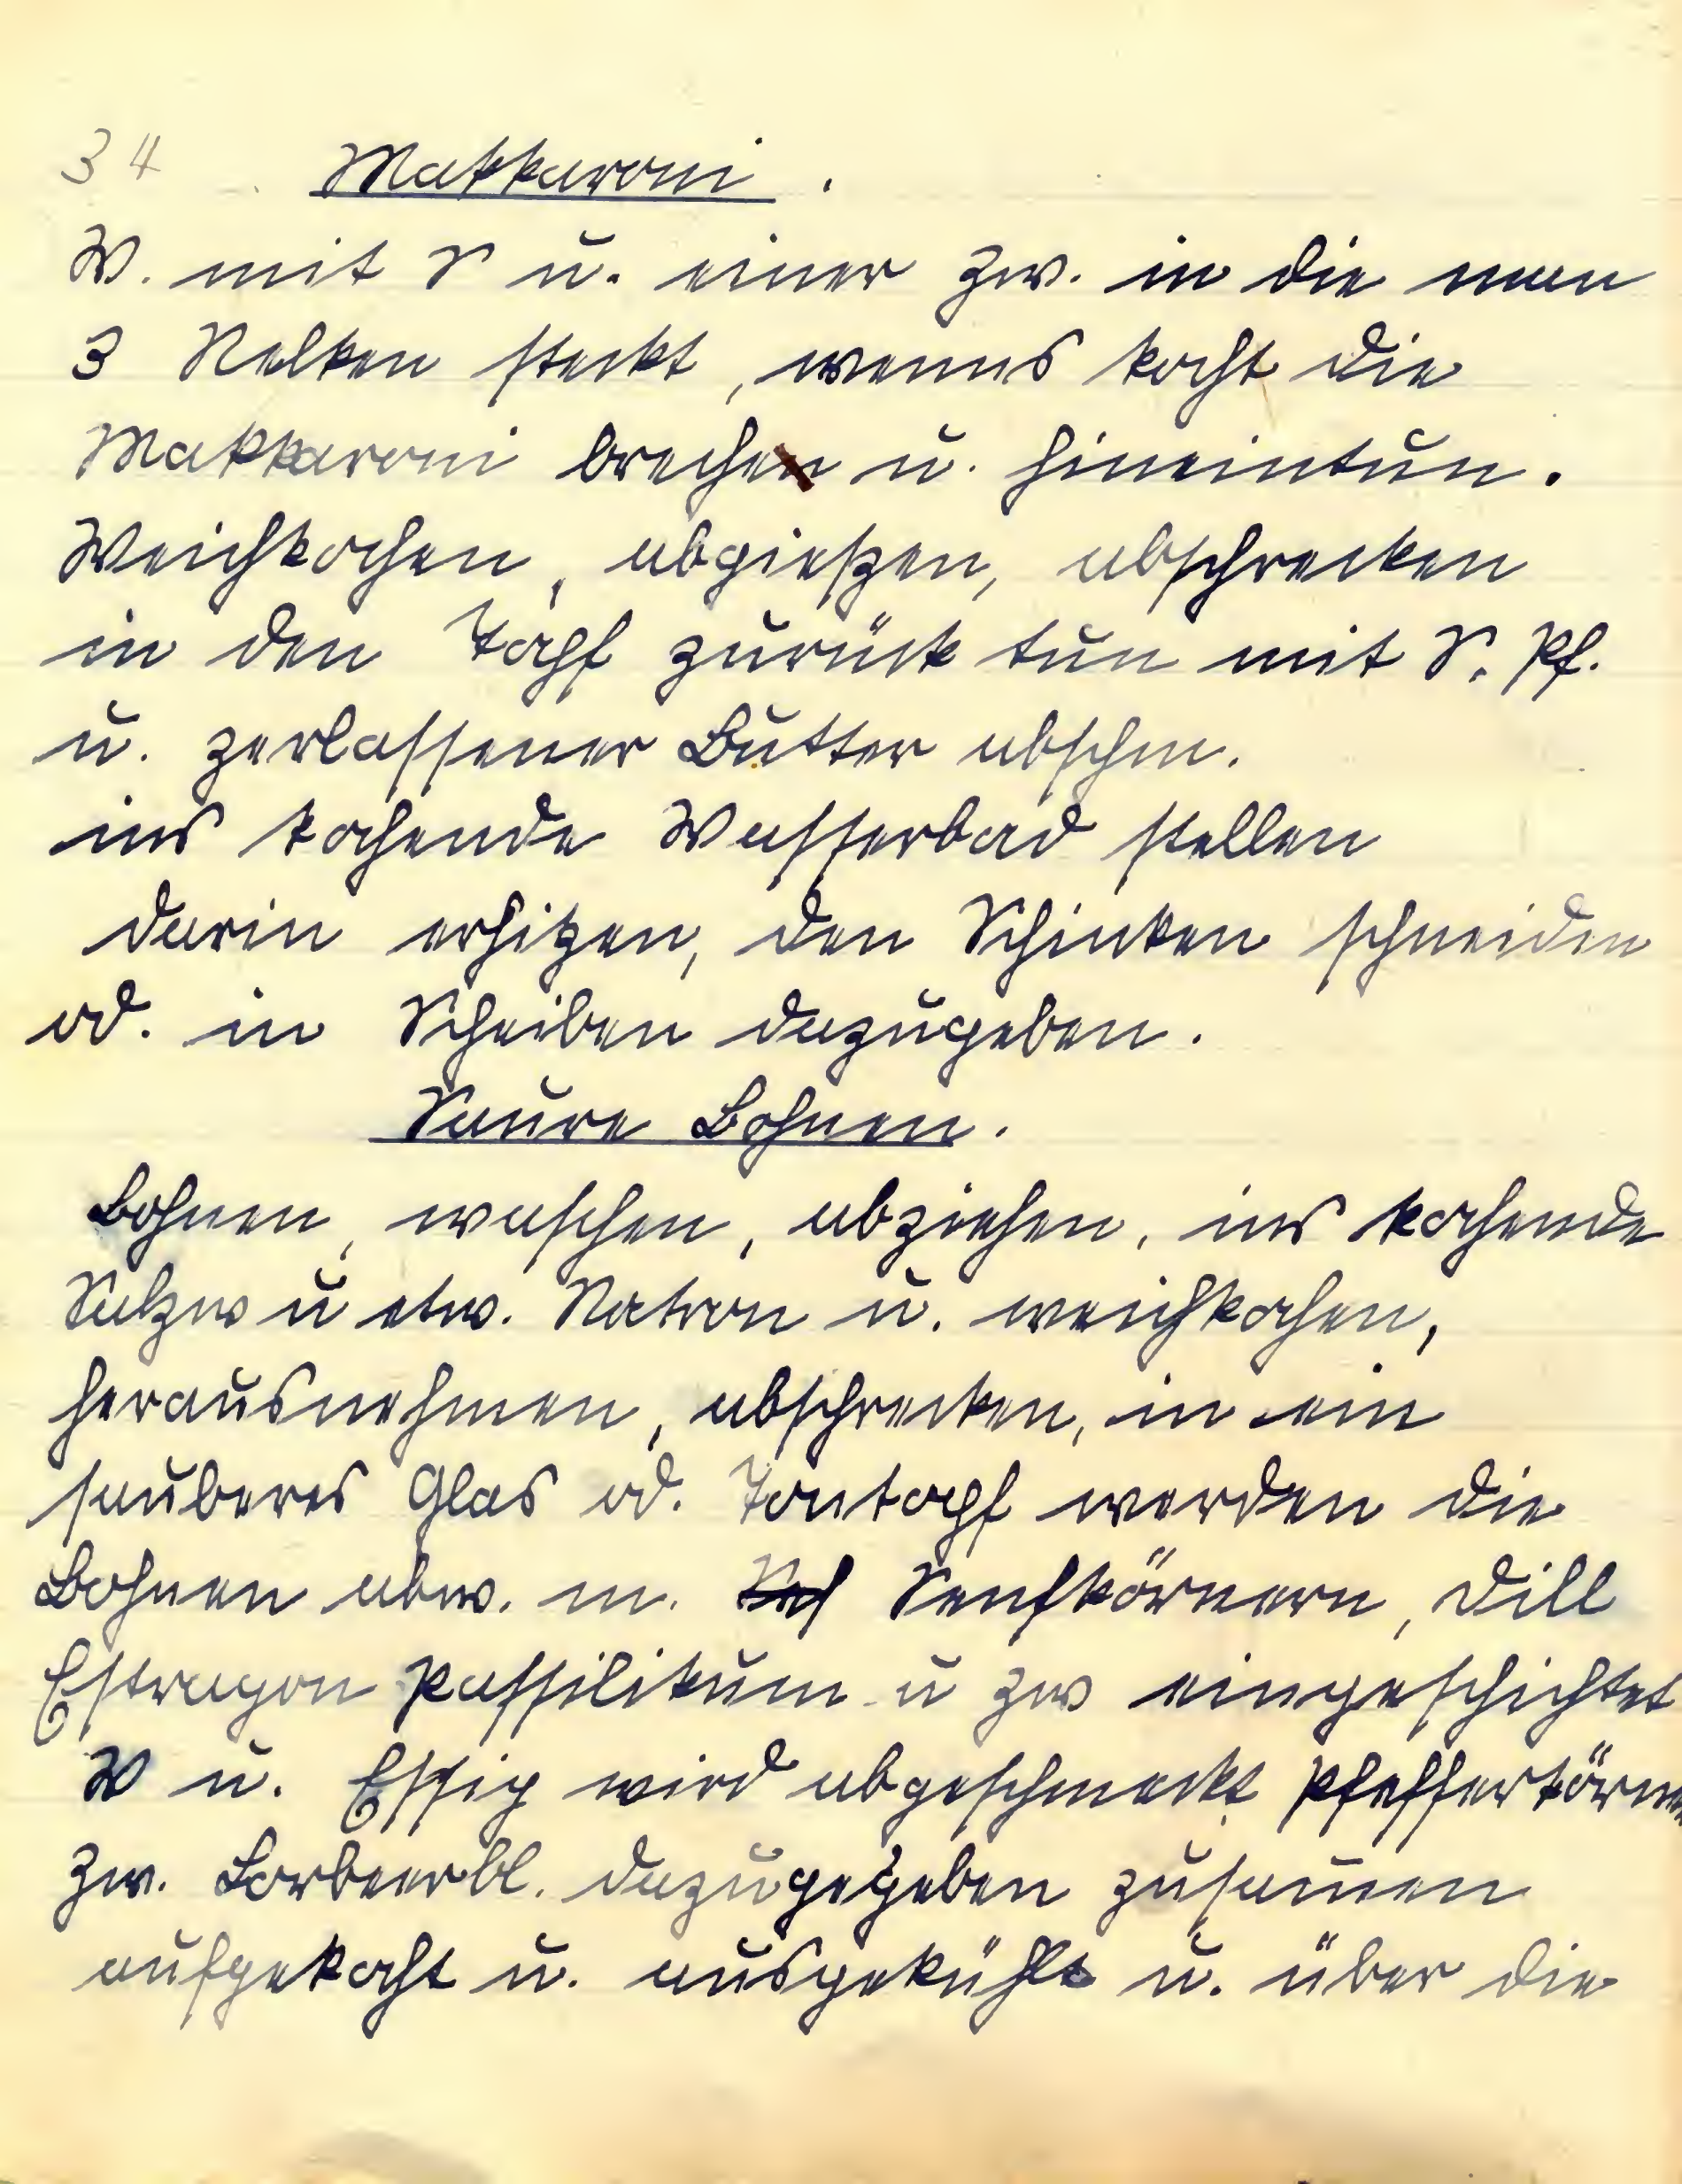 34 Makkaroni.
W. mit S u. einer Zw. in die man
3 Nelken steckt, wenns kocht die
Makkaroni brechen u. hineintun.
Weichkochen, abgießen, abschrecken
in den Topf zurück tun mit S. Pf.
u. zerlassener Butter abschm.
ins kochende Wasserbad stellen
darin erhitzen, den Schinken schneiden
od. in Scheiben dazugeben.
Saure Bohnen.
Bohnen, waschen, abziehen, ins kochende
Salzw u etw. Natron u. weichkochen,
herausnehmen, abschrecken, in ein
sauberes Glas od. Tontopf werden die
Bohnen abw. m. Senfkörnern, Dill
Estragon Passilikum u Zw eingeschichtet
W u. Essig wird abgeschmeckt Pfefferkörner
Zw. Lorbeerbl. dazugegeben zusam̄en
aufgekocht u. ausgekühlt u. über die